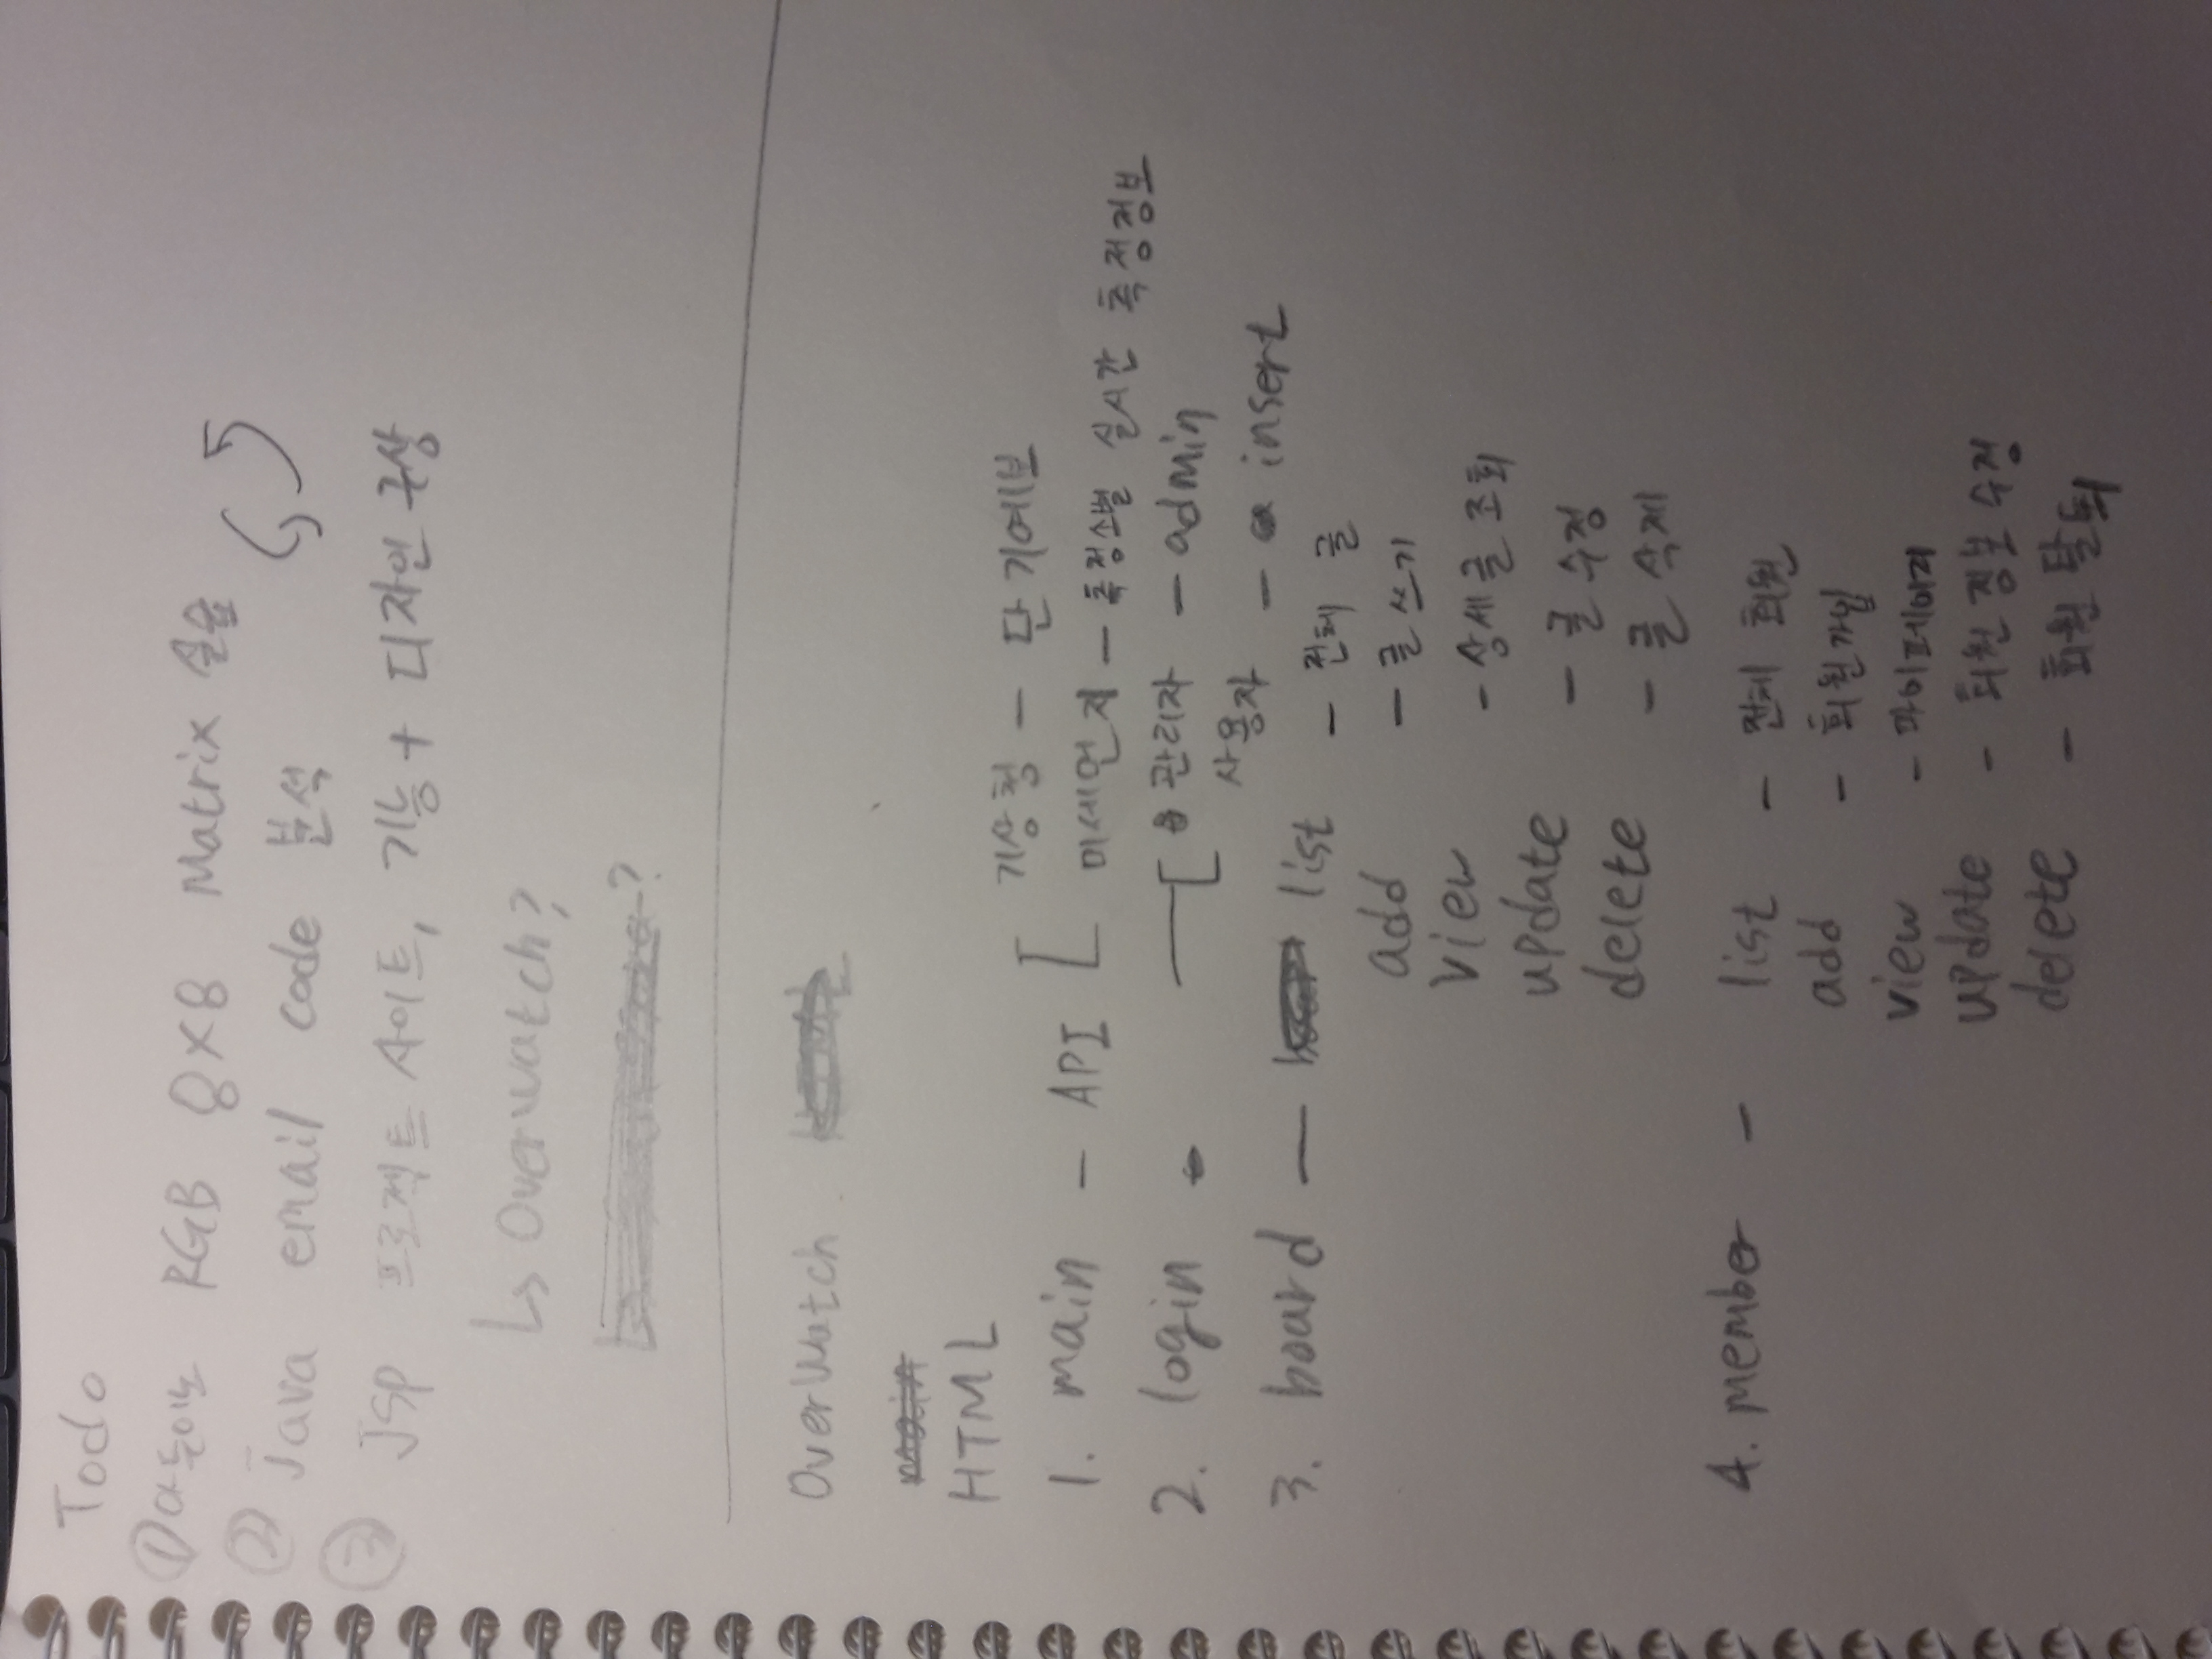 Todo
① 아두이노 RGB 8X8 Matrix 실습
② Java email code 분석
③ JSP 프로젝트 사이트, 기능 + 디자인 구상
↳ Overwatch?
?
OverWatch
main
HTML
1. main - API [ 기상청 - 단기예보
미세먼지 - 측정소별 실시간 측정정보
2. login - [ 관리자 - admin
사용자 - insert
3. board - list - 전체 글
add - 글쓰기
view - 상세글 조회
update - 글 수정
delete - 글 삭제
4. member - list - 전체 회원
add - 회원가입
view - 마이페이지
update - 회원 정보 수정
delete - 회원 탈퇴